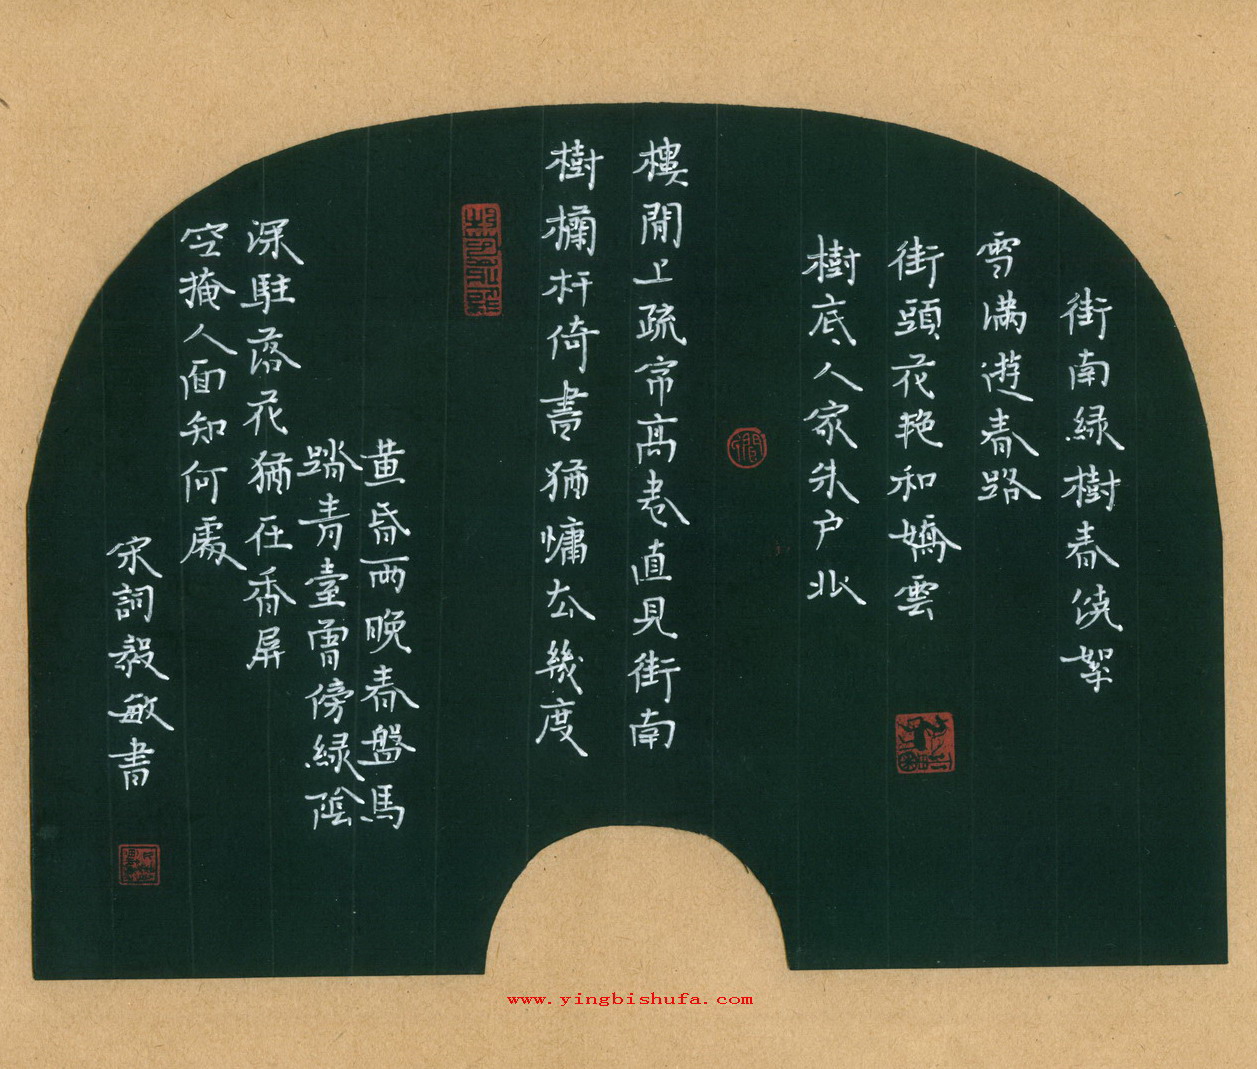 街南緑樹春饶絮
雪滿遊春路
街頭花艳和嬌雲
樹底人家朱户北
樓閒上疏帘高卷直見街南
樹欄杆倚盡猶慵去幾度
黄昏雨晚春盤馬
踏青臺曾傍緑陰
深駐落花猶在香屏
空掩人面知何處
宋詞毅敏書
www.yingbishufa.com